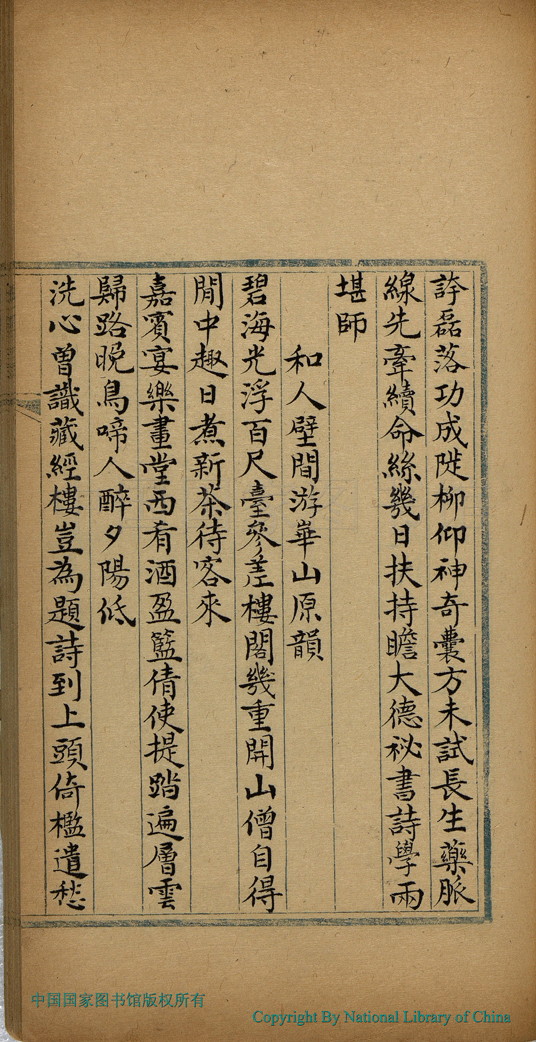 許磊落功成陡柳仰神奇囊方未試長生藥脈
線先牽續命絲幾日扶持瞻大德祕書詩學兩
堪師
和人壁間游華山原韻
碧海光浮百尺臺參差樓閣幾重開山僧自得
閒中趣日煮新茶待客來
嘉賓宴樂畫堂西肴酒盈籃倩使提踏遍層雲
歸路晚鳥啼人醉夕陽低
洗心曾識藏經樓豈為題詩到上頭倚檻遣愁
中国国家图书馆版权所有
Copyright By National Library of China